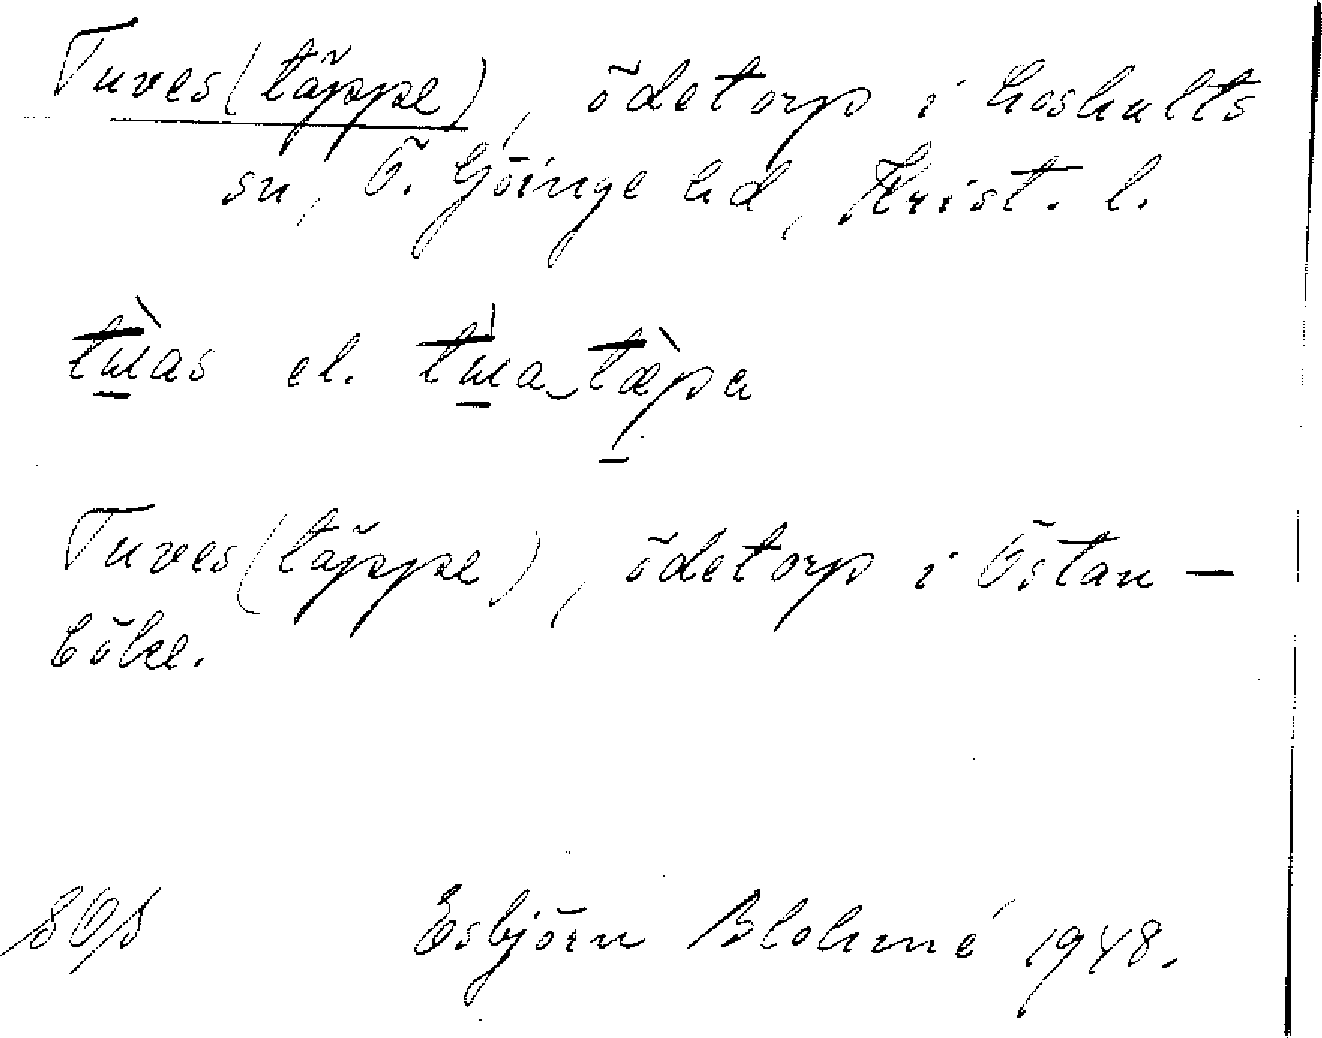 Tuves(täppe), ödetorp i Loshults
sn, Ö. Göinge hd, Krist. l.
tẁas el. tẁa‿tæ̀pa
Tuves(täppe), ödetorp i Östan-
böke.
Esbjörn Blohmé 1948.